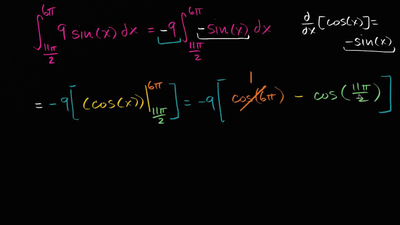 ∫_{11π/2}^{6π} 9 sin(x) dx = -9 ∫_{11π/2}^{6π} -sin(x) dx
∂/∂x [cos(x)] = -sin(x)
= -9 [ (cos(x)) |_{11π/2}^{6π} ] = -9 [ cos(6π) 1 - cos(11π/2) ]